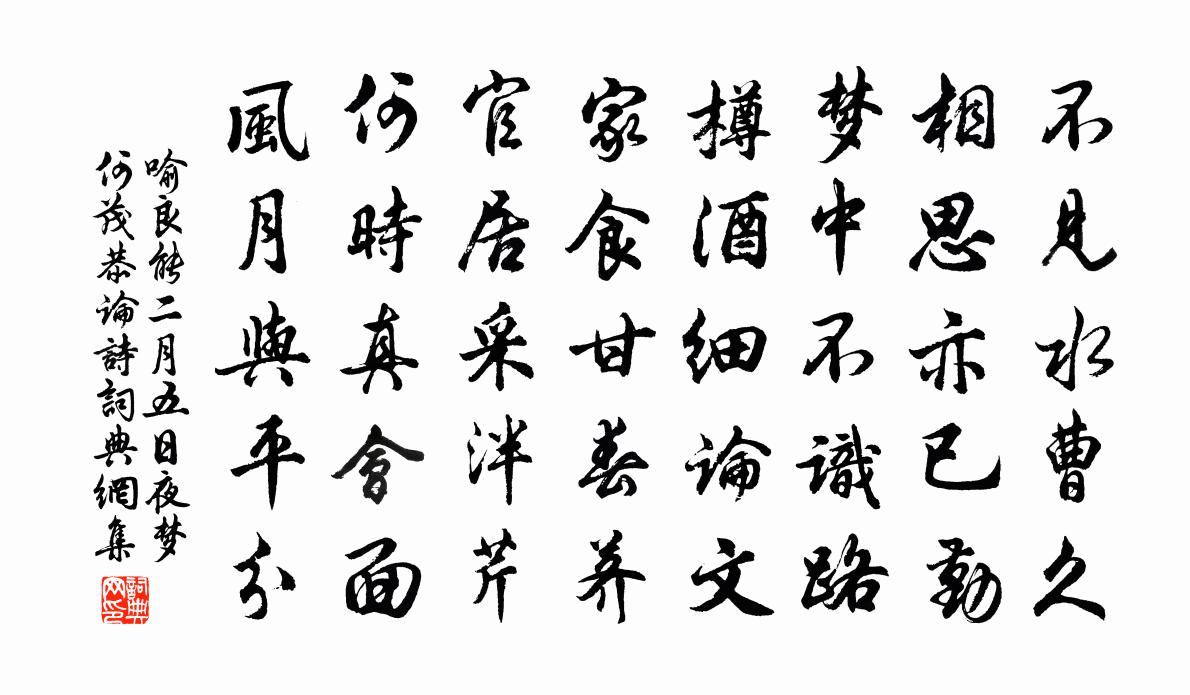 不見水曹久
相思亦已勤
梦中不識路
樽酒細論文
家食甘春荠
官居采泮芹
何時真會面
風月與平分
喻良能二月五日夜梦
何茂恭論詩詞典網集
詞典
网印